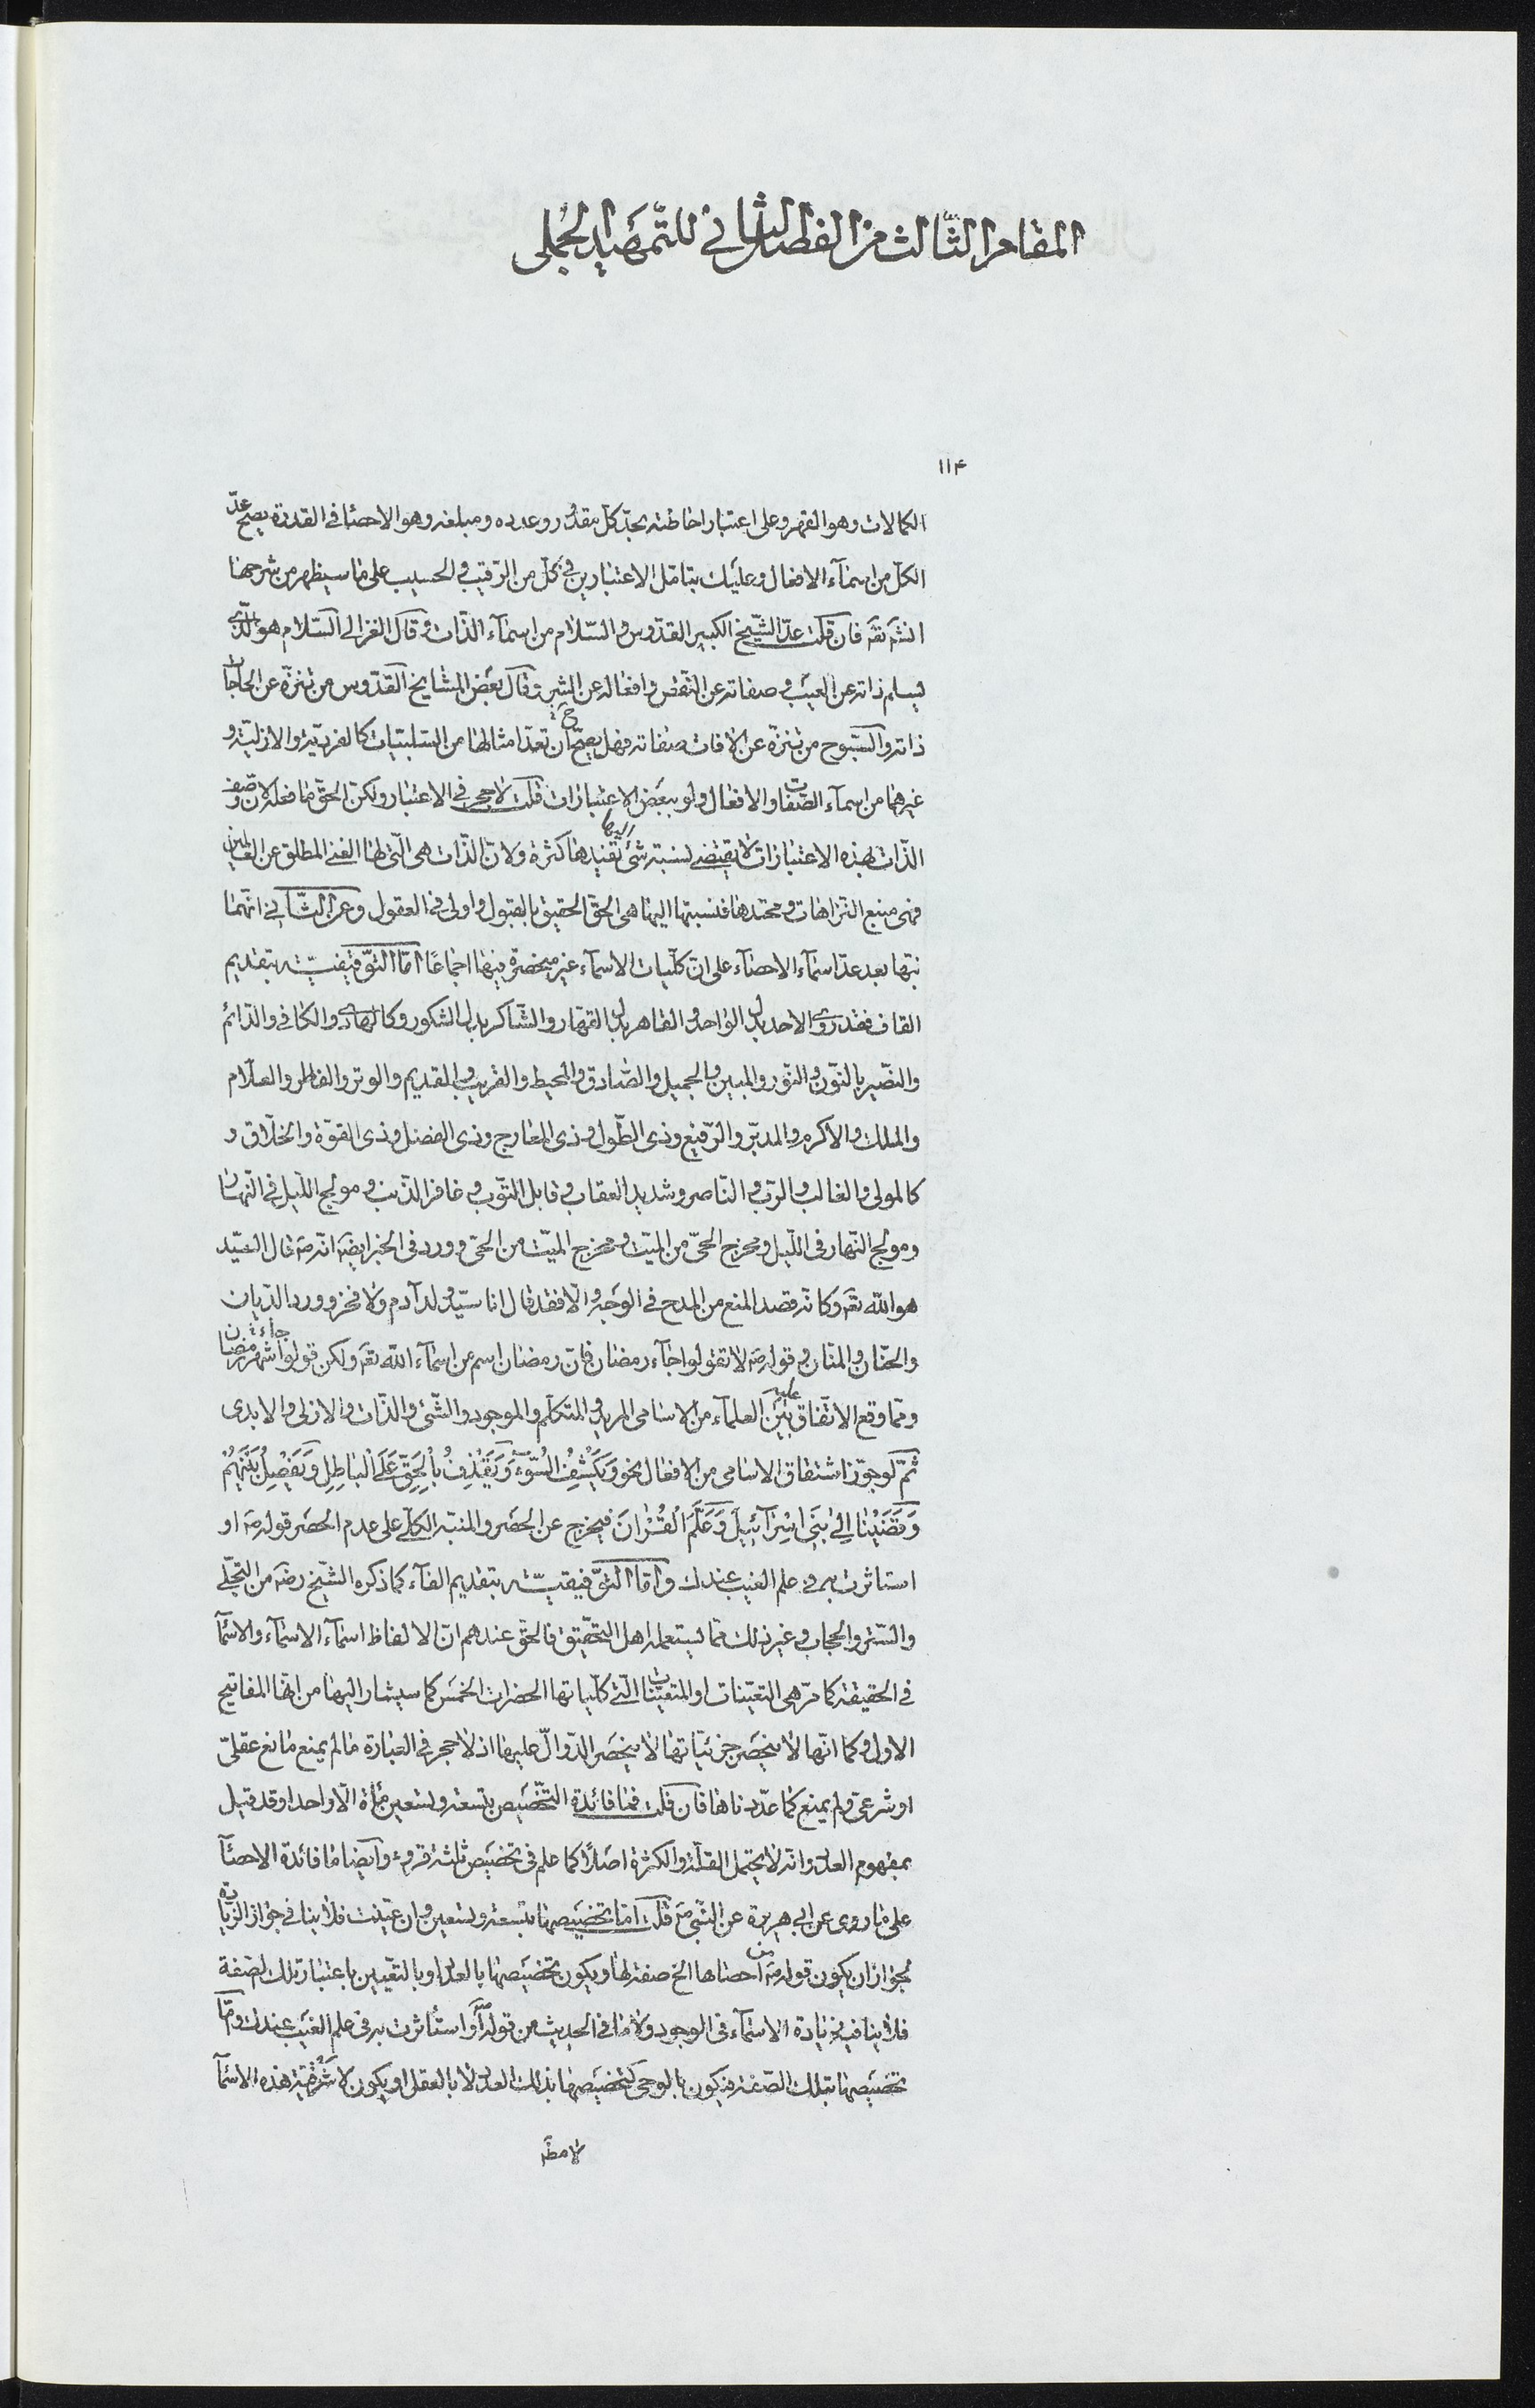 المقام الثّالث من الفصل الثاني للتّمهيد الجملى
١١۴
الكمالات وهو القهر وعلى اعتبار احاطته بحدّ كلّ مقدور وعدده ومبلغه وهو الاحصا فى القدرة يصحّ عدّ
الكلّ من اسمآء الافعال وعليك بتامّل الاعتبارين فى كلّ من الرّقيب والحسيب على ما سيظهر من شرحها
انشٓه تعٓه فان قلت عدّ الشّيخ الكبير القدّوس والسّلام من اسمآء الذّات وقال الغزالى السّلام هو الّذى
يسلم ذاته عن العيب وصفاته عن النّقص وافعاله عن الشر وقال بعض المشايخ القدّوس من تنزّه عن الحاجات
ذاته والسّبوح من تنزّه عن الافات صفاته فهل يصحّ ان تعدّ امثالها من السّلبيّات كالفرديّة والازليّة و
غيرهما من اسمآء الصّفات والافعال ولو ببعض الاعتبارات قلت لا حجر فى الاعتبار ولكن الحقّ ما فعله لان وصف
الذّات بهذه الاعتبارات لا يقتضى لنسبته شئ اليها تفيدها كثرة ولانّ الذّات هى الّتى لها الغنى المطلق عن العالمين
فهى منبع النزاهات ومحتدها فنسبتها اليها هى الحقّ الحقيق بالقبول واولى فى العقول وعن الثّانى انّهما
نبّها بعد عدّ اسمآء الاحصآء على انّ كلّيات الاسمآء غير منحصرة فيها اجماعًا امّا التّوقيفيّة بتقديم
القاف فقد روى الاحد بدل الواحد والقاهر بدل القهّار والشّاكر بدل الشكور وكالهادى والكافى والدّائم
والنّصير بالنّون والنّور والمبين والجميل والصّادق والمحيط والقريب والقديم والوتر والفاطر والعلّام
والملك والاكرم والمدبّر والرّفيع وذى الطّول وذى المعارج وذى الفضل وذى القوّة والخلّاق و
كالمولى والغالب والربّ والنّاصر وشديد العقاب وقابل التّوب وغافر الذّنب ومولج اللّيل فى النّهار
ومولج النّهار فى اللّيل ومخرج الحىّ من الميّت ومخرج الميّت من الحىّ وورد فى الخبر ايضٓه انّه صٓه قال السّيّد
هو اللّه تعٓه وكانّه قصد المنع من المدح فى الوجه والّا فقد قال انا سيّد ولد آدم ولا فخر وورد الدّيان
والحنّان والمنّان وقوله صٓه لا تقولوا جآء رمضان فانّ رمضان اسم من اسمآء اللّه تعٓه ولكن قولوا جاء شهر رمضان
وممّا وقع الاتّفاق عليه بين العلمآء من الاسامى المريد والمتكلّم والموجود والشّئ والذّات والازلى والابدى
ثمّ لو جوّز اشتقاق الاسامى من الافعال نحو وَيَكْشِفُ السُّوٓءَ وَيَقْذِفُ بِالْحَقِّ عَلَى الْباطِلِ وَيَفْصِلُ بَيْنَهُمْ
وَقَضَيْنا اِلى بَنى اِسْرآئيلَ وَعَلَّمَ الْقُرْانَ فيخرج عن الحصر والمنبّه الكلّى على عدم الحصر قوله صٓه او
استاثرت به فى علم الغيب عندك وامّا التّوفيقيّة بتقديم الفآء كما ذكره الشّيخ رضٓه من التّجلّى
والسّتر والحجاب وغير ذلك ممّا يستعمله اهل التّحقيق فالحقّ عندهم انّ الالفاظ اسمآء الاسمآء والاسمآ
فى الحقيقة كما مرّ هى التعيّنات او المتعيّنات الّتى كلّياتها الحضرات الخمس كما سيشار اليها من انّها المفاتيح
الاول وكما انّها لا ينحصر جزئيّاتها لا ينحصر الدّوالّ عليها اذ لا حجر فى العبارة ما لم يمنع مانع عقلىّ
او شرعىّ ولم يمنع كما عدّدناها فان قلت فما فائدة التّخصيص بتسعة وتسعين مائة الّا واحدا وقد قيل
بمفهوم العدد وانّه لا يحتمل القلّة والكثرة اصلًا كما علم فى تخصيص ثلثة قروء وايضا ما فائدة الاحصآ
على ما روى عن ابى هريرة عن النّبى صٓه قلت امّا تخصيصها بتسعة وتسعين وان عيّنت فلا ينافى جواز الزّيادة
لجواز ان يكون قوله صٓه من احصاها الخ صفة لها ويكون تخصيصها بالعدد او بالتعيين باعتبار تلك الصّفة
فلا ينافيه زيادة الاسمآء فى الوجود ولا ما فى الحديث من قوله او استأثرت به فى علم الغيب عندك وامّا
تخصيصها بتلك الصّفة فيكون بالوحى كتخصيصها بذلك العدد لا بالعقل او يكون لاشرفيّة هذه الاسمآ
لا مطٓه